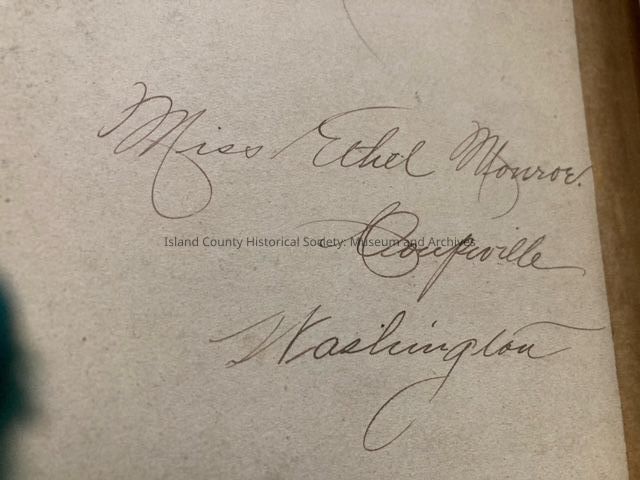 Miss Ethel Monroe.
Island County Historical Society: Museum and Archives
Coupeville
Washington